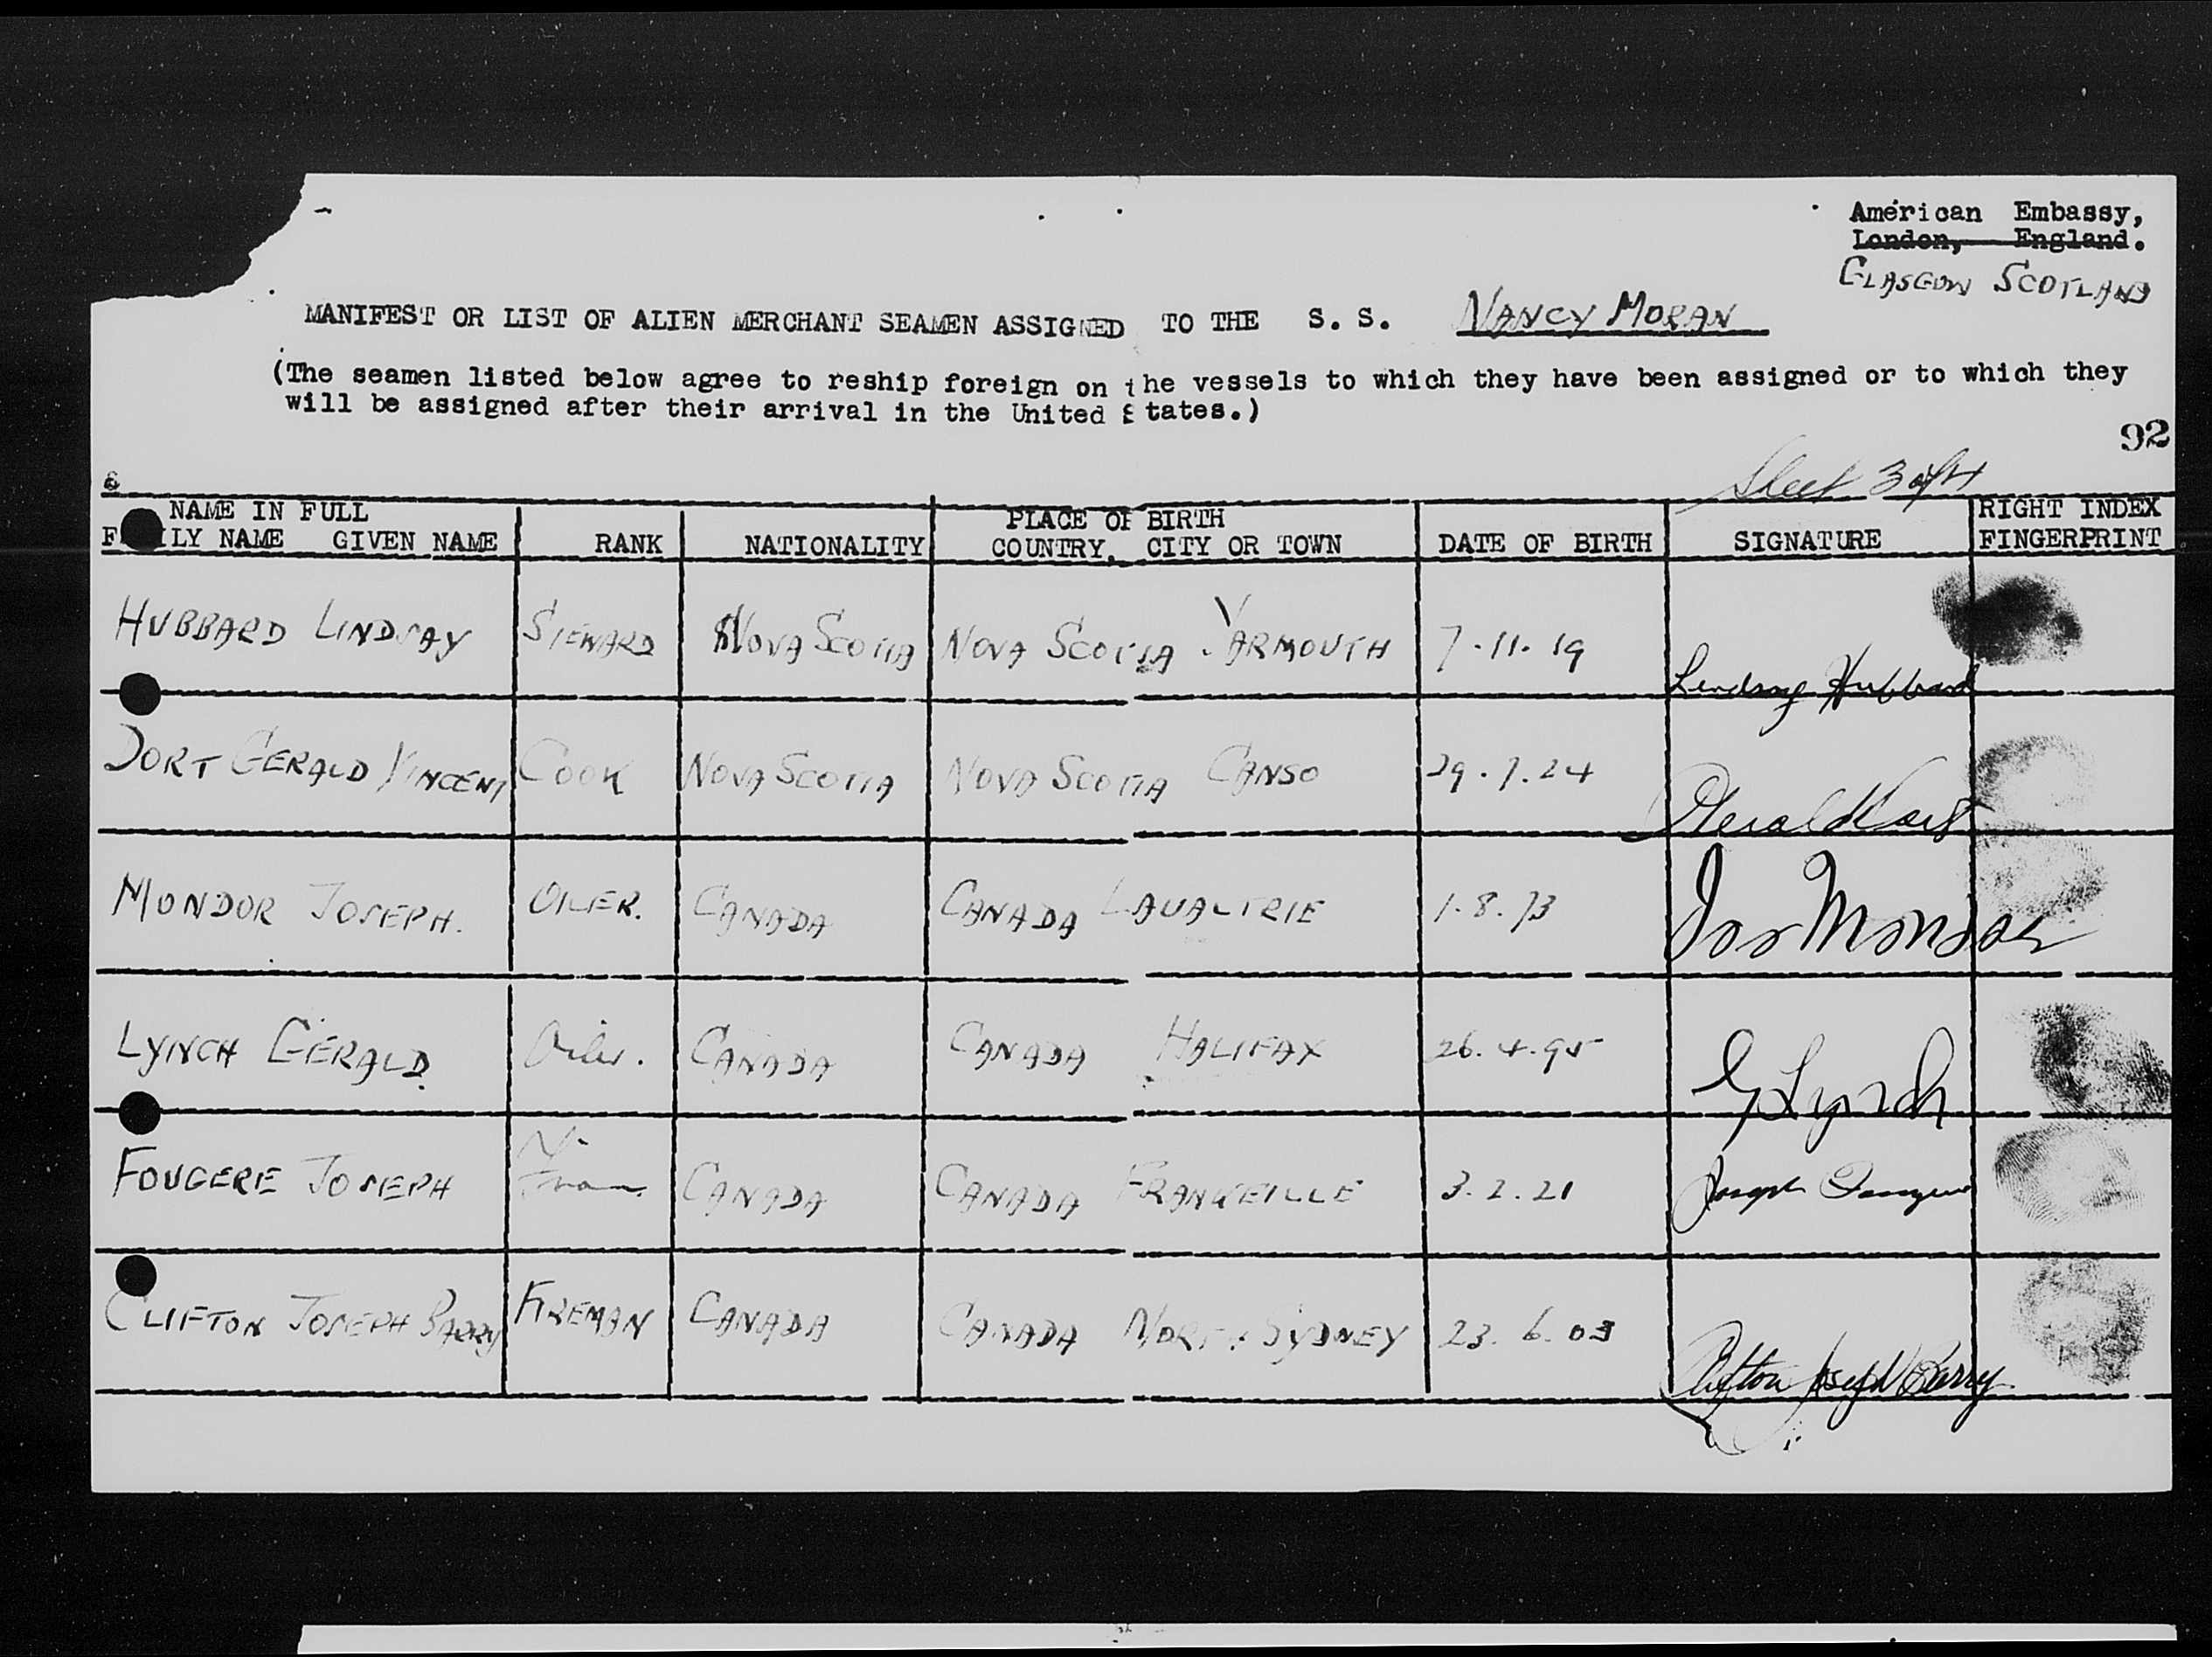 American Embassy,
London, England.
GLASGOW SCOTLAND
MANIFEST OR LIST OF ALIEN MERCHANT SEAMEN ASSIGNED TO THE S. S. NANCY MORAN
(The seamen listed below agree to reship foreign on the vessels to which they have been assigned or to which they
will be assigned after their arrival in the United States.)
92
Sheet 3 of 4
NAME IN FULL PLACE OF BIRTH RIGHT INDEX
FAMILY NAME GIVEN NAME RANK NATIONALITY COUNTRY, CITY OR TOWN DATE OF BIRTH SIGNATURE FINGERPRINT
HUBBARD LINDSAY STEWARD NOVA SCOTIA NOVA SCOTIA YARMOUTH 7.11.19 Lindsay Hubbard
DORT GERALD VINCENT COOK NOVA SCOTIA NOVA SCOTIA CANSO 29.7.24 Gerald Dort
MONDOR JOSEPH. OILER. CANADA CANADA LAVALTRIE 1.8.13 Jos Mondor
LYNCH GERALD. Oiler. CANADA CANADA HALIFAX 26.4.95 G Lynch
FOUGERE JOSEPH CANADA CANADA 3.2.21 Joseph Fougere
CLIFTON JOSEPH BARRY FIREMAN CANADA CANADA NORTH SYDNEY 23.6.03 Clifton Joseph Barry